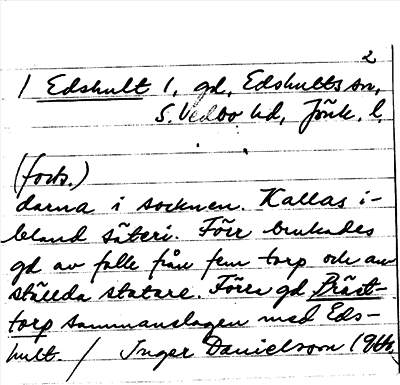 2
/ Edshult 1, gd, Edshults sn,
S. Vedbo hd, Jönk. l.
(forts.)
darna i socknen. Kallas i-
bland säteri. Förr brukades
gd av folk från fem torp och an
ställda statare. Förr gd Bräst-
torp sammanslagen med Eds-
hult. / Inger Danielsson